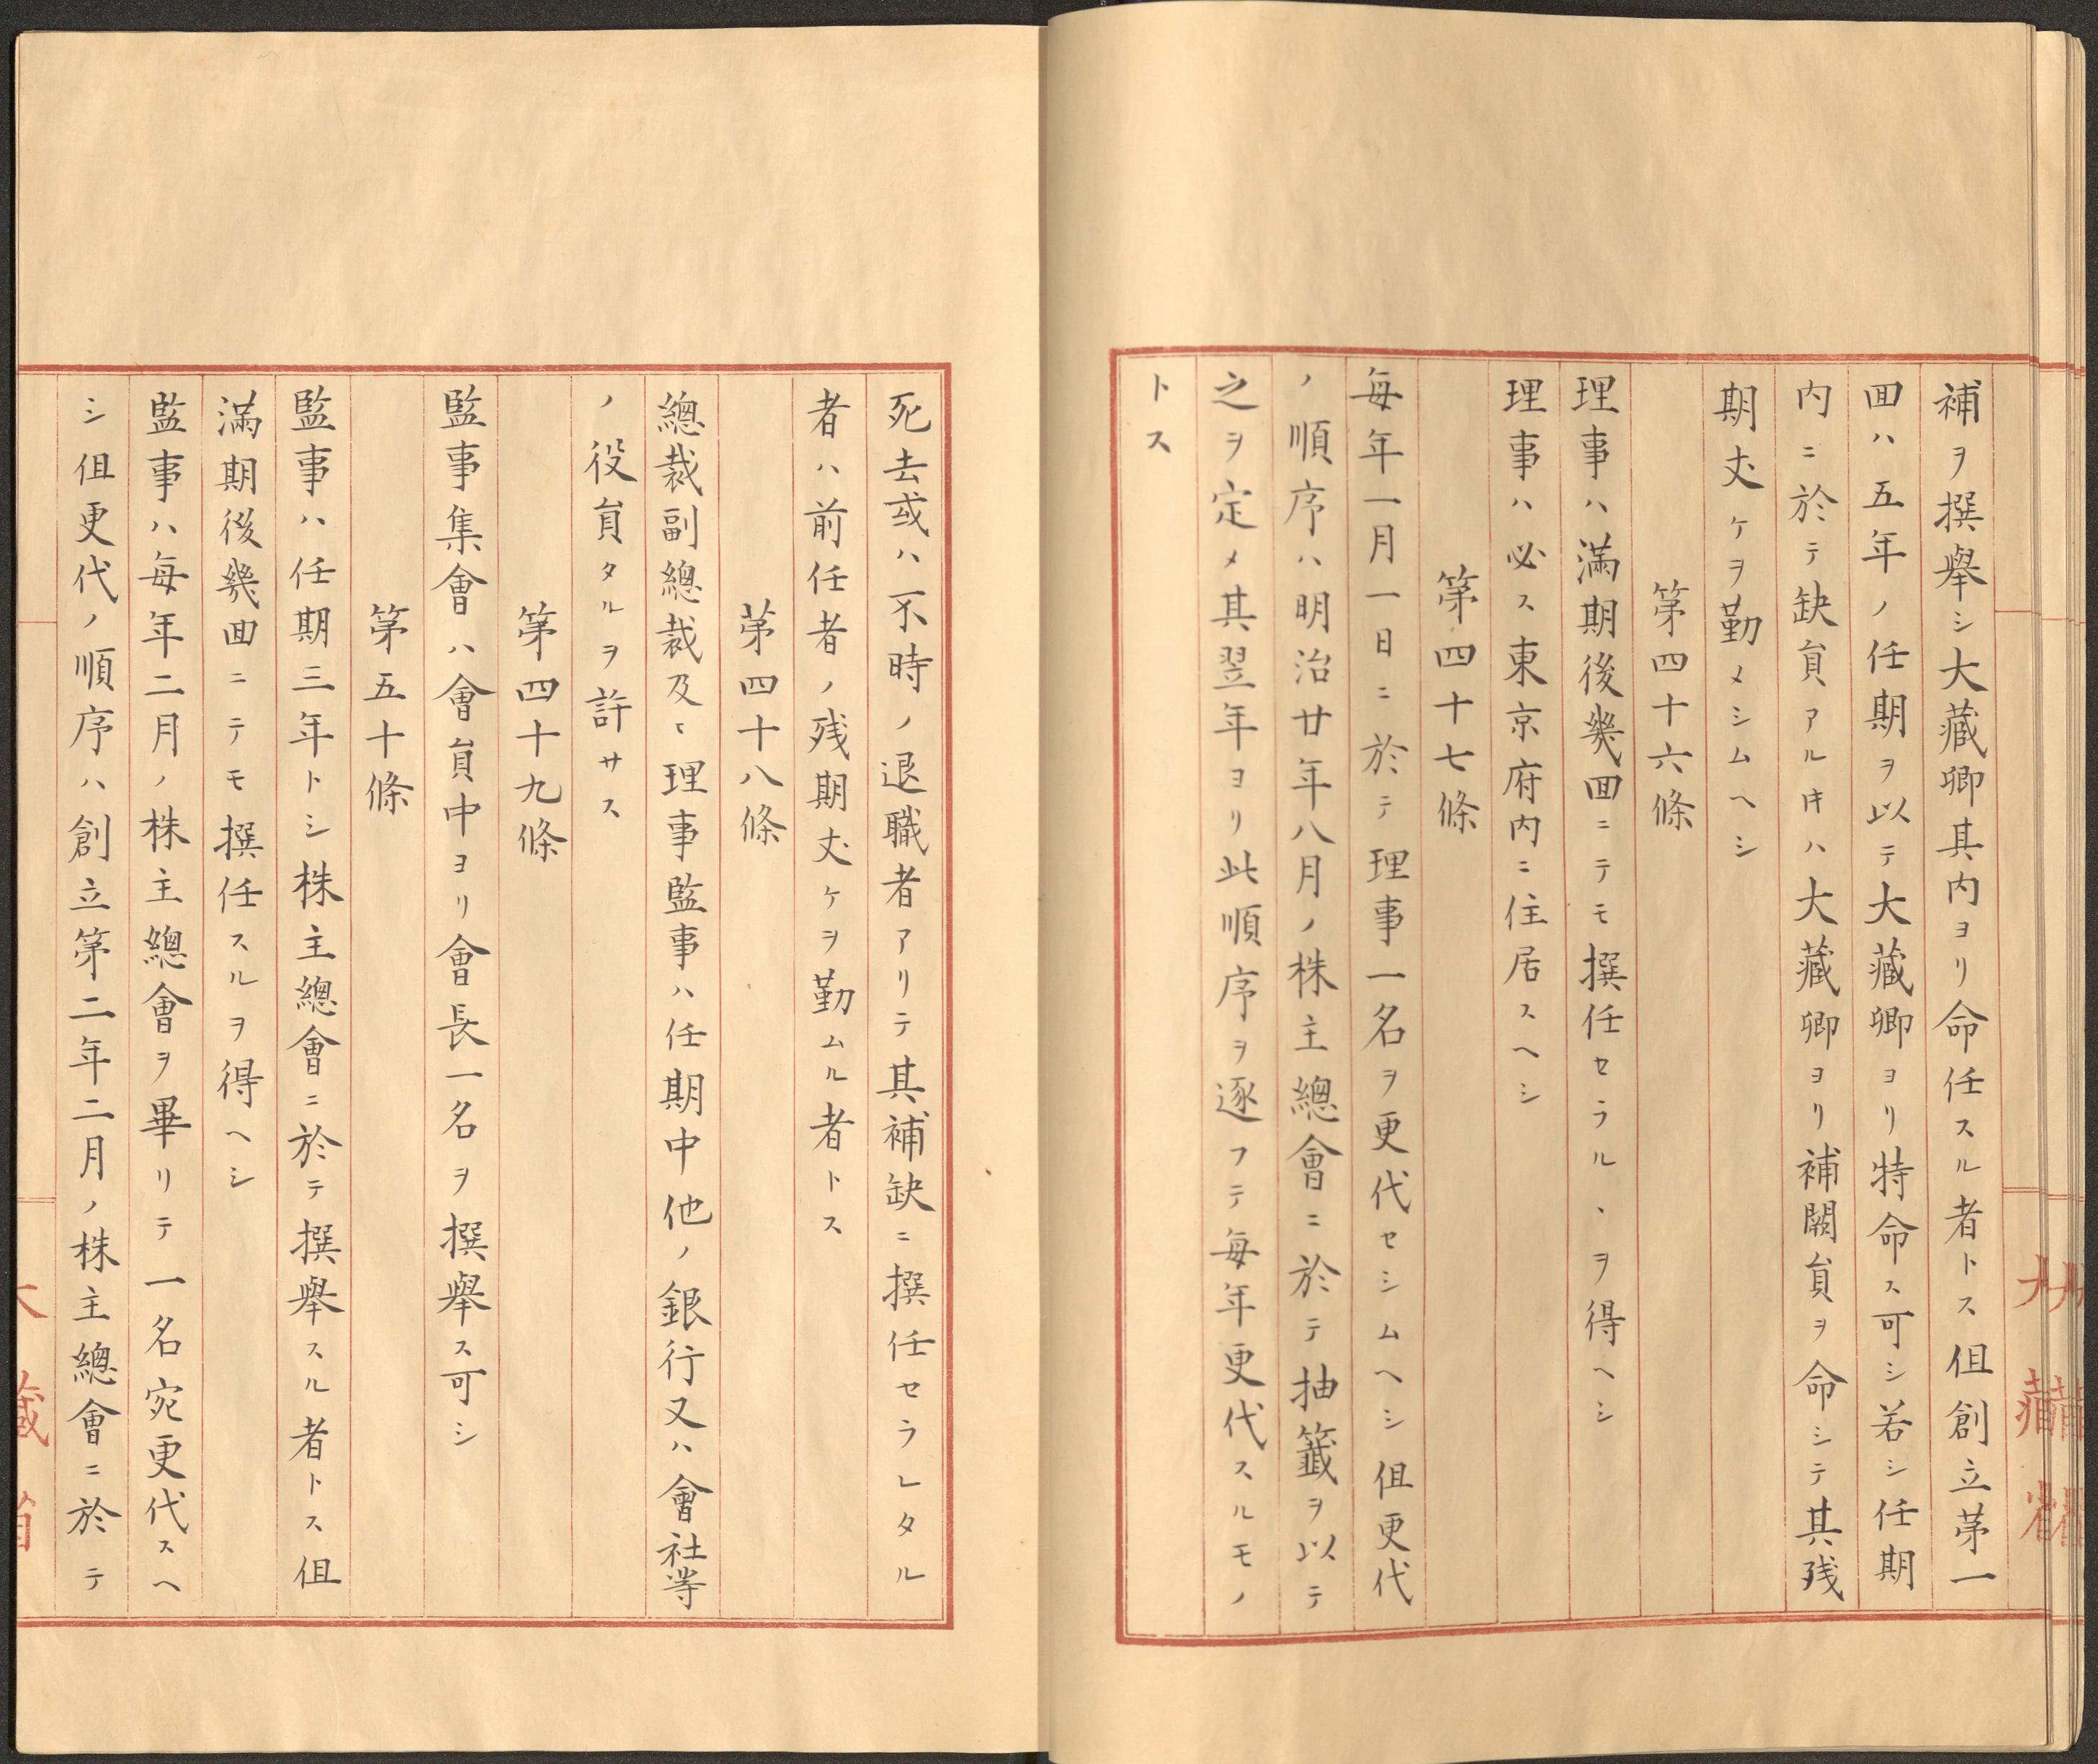 補ヲ撰擧シ大藏卿其内ヨリ命任スル者トス但創立苐一
回ハ五年ノ任期ヲ以テ大藏卿ヨリ特命ス可シ若シ任期
内ニ於テ缺員アル䏻ハ大藏卿ヨリ補闕員ヲ命シテ其残
期丈ケヲ勤メシムヘシ
第四十六條
理事ハ滿期後幾回ニテモ撰任セラルヽヲ得ヘシ
理事ハ必ス東京府内ニ住居スヘシ
第四十七條
毎年一月一日ニ於テ理事一名ヲ更代セシムヘシ但更代
ノ順序ハ明治廿年八月ノ株主總會ニ於テ抽籤ヲ以テ
之ヲ定メ其翌年ヨリ此順序ヲ逐フテ毎年更代スルモノ
トス
死去或ハ不時ノ退職者アリテ其補缺ニ撰任セラレタル
者ハ前任者ノ残期丈ケヲ勤ムル者トス
苐四十八條
總裁副總裁及ヒ理事監事ハ任期中他ノ銀行又ハ會社等
ノ役員タルヲ許サス
第四十九條
監事集會ハ會員中ヨリ會長一名ヲ撰擧ス可シ
第五十條
監事ハ任期三年トシ株主總會ニ於テ撰擧スル者トス但
滿期後幾回ニテモ撰任スルヲ得ヘシ
監事ハ毎年二月ノ株主總會ヲ畢リテ一名宛更代スヘ
シ但更代ノ順序ハ創立第二年二月ノ株主總會ニ於テ
大藏省